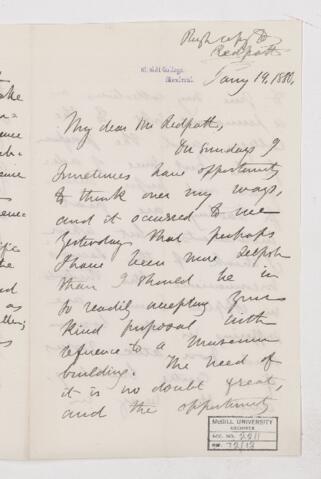 Rough copy to
Redpath
McGill College
Montreal
Jany 19, 1880,
My dear Mr Redpath,
On Sundays I
sometimes have opportunity
to think over my ways,
and it occurred to me
yesterday that perhaps
I have been more selfish
than I should be in
so readily accepting your
kind proposal with
reference to a Museum
building. The need of
it is no doubt great,
and the opportunity
McGILL UNIVERSITY
ARCHIVES
ACC. NO. 2211
REF.